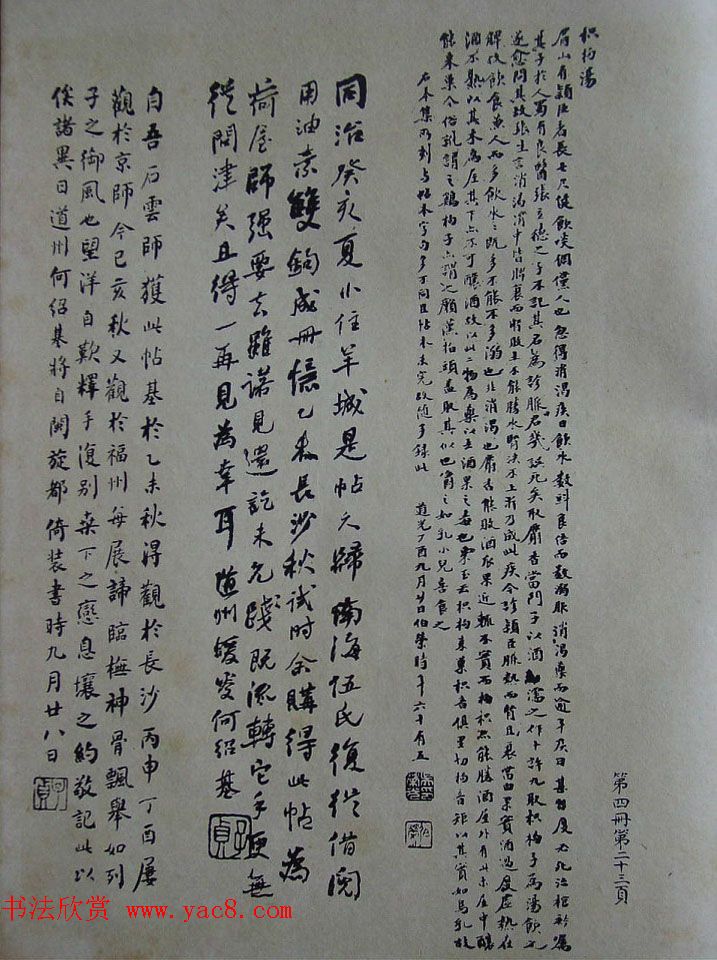 枳枸湯
眉山有穎臣者長七尺健飲啖倜儻人也忽得消渴疾日飲水數斗食倍而數溺服消渴藥而逾年疾日甚自度必死治棺衾屬
其子於人蜀有良醫張立德之子不記其名為診脈笑曰君幾誤死矣取麝香當門子以酒濡之作十許丸取枳枸子為湯飲之
遂愈問其故張生言消渴消中皆脾衰而腎敗土不能勝水腎液不上泝乃成此疾今診穎臣脾熱而腎且衰當由果實酒過度虛熱在
脾故飲食兼人而多飲水水既多不能不多溺也非消渴也麝香能敗酒瓜果近輒不實而枳枸亦能勝酒屋外有此木屋中釀
酒不熟以其木為屋其下亦不可釀酒故以此二物為藥以去酒果之毒也宋玉云枳枸來巢枳音俱里切枸音矩以其實如鳥乳故
能來巢今俗訛謂之雞枸子亦謂之癩漢指頭蓋取其似也嚼之如乳小兒喜食之
石本集所刻與帖本字句多不同且帖本未完故隨手錄此 道光丁酉九月廿日伯榮時年六十有五
同治癸亥夏小住羊城是帖久歸南海伍氏復從借閱
用油素雙鉤成冊憶乙未長沙秋試時余購得此帖為
荷屋師強要去雖諾見還訖未允踐既流轉它手更無
從問津矣且得一再見為幸耳 道州蝯叟何紹基
自吾石雲師獲此帖基於乙未秋得觀於長沙丙申丁酉屢
觀於京師今己亥秋又觀於福州每展諦臨橅神骨飄舉如列
子之御風也望洋自歎釋手復別桑下之戀息壤之約敬記此以
俟諸異日道州何紹基將自閩旋都倚裝書時九月廿八日
第四冊第二十三頁
书法欣赏 www.yac8.com